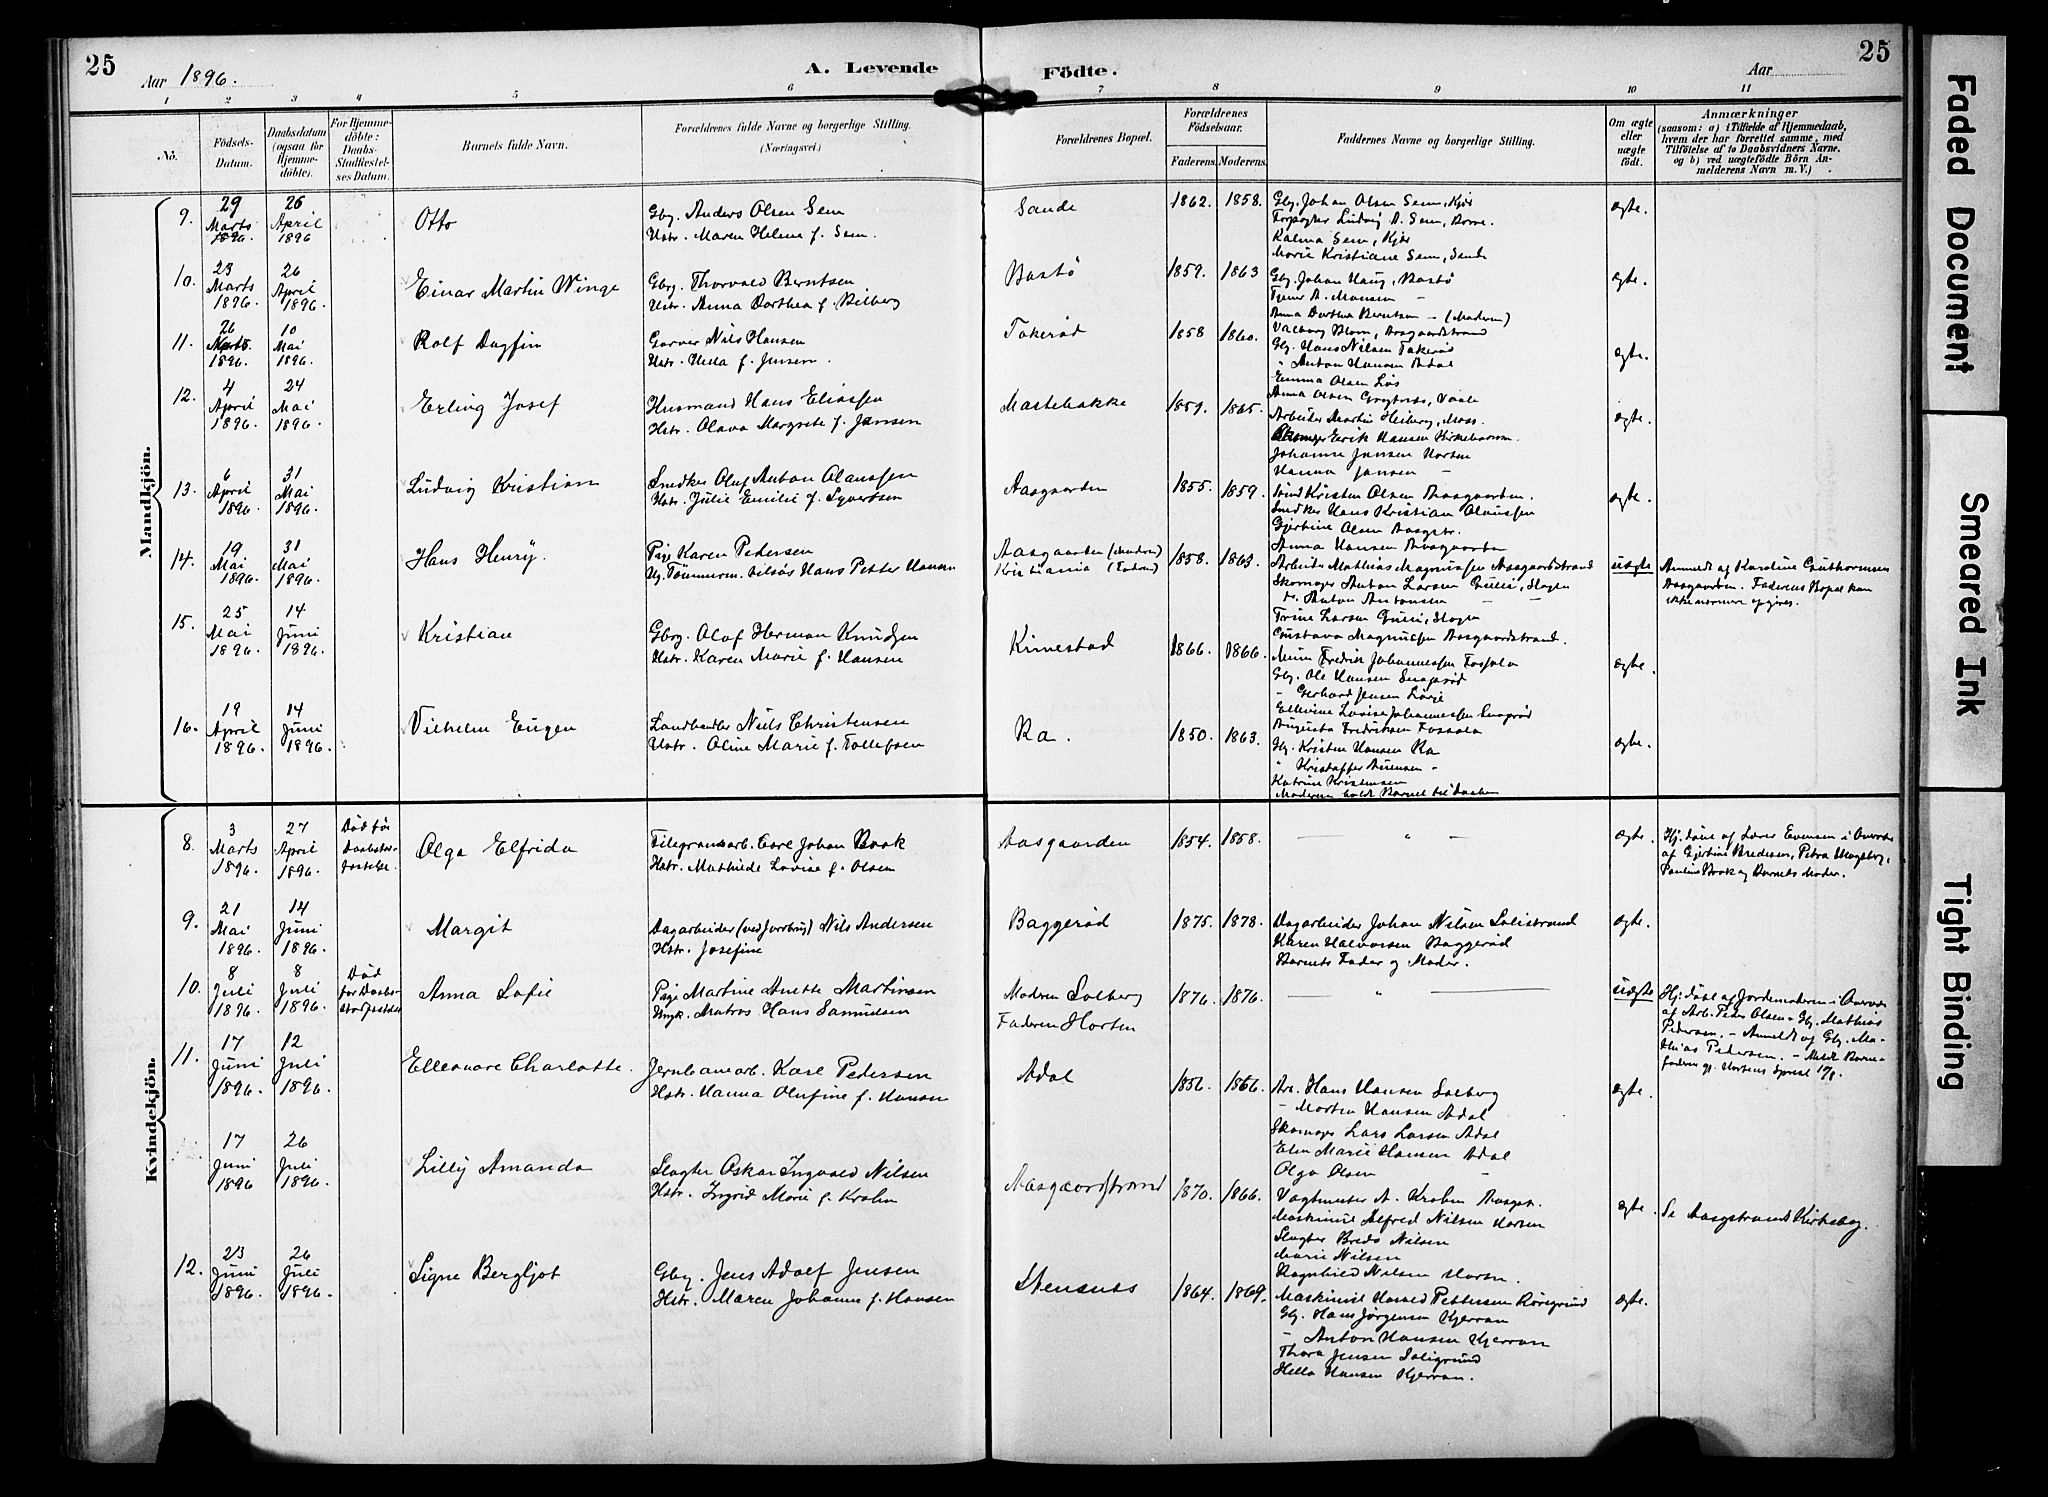 25
Aar 1896.
A. Levende Födte.
Aar
25
1 2 3 4 5 6 7 8 9 10 11
No.
Födsels-Datum.
Daabsdatum (ogsaa for Hjemme-döbte).
For Hjemme-döbte: Daabs-Stadfæstel-ses Datum.
Barnets fulde Navn.
Forældrenes fulde Navne og borgerlige Stilling.
(Næringsvei)
Forældrenes Bopæl.
Forældrenes Födselsaar.
Faderens. Moderens.
Faddernes Navne og borgerlige Stilling.
Om ægte eller uægte födt.
Anmærkninger
(saasom: a) i Tilfælde af Hjemmedaab,
hvem der har forrettet samme, med
Tilföielse af to Daabsvidners Navne,
og b) ved uægtefödte Börn An-
melderens Navn m. V.)
Mandkjön.
9. 29 Marts 1896. 26 April 1896 Otto
Gbg. Anders Olsen Sem
Hstr. Maren Helene f. Sem.
Sande 1862. 1858.
Gbg. Johan Olsen Sem, Kjær
Forpagter Ludvig A. Sem, Borre.
Kalma Sem, Kjær
Marie Kristiane Sem, Sande
ægte.
10. 23 Marts 1896. 26 April 1896. Einar Martin Winge
Gbrg. Thorvald Berntsen
Hstr. Anna Dorthea f. Bilberg
Bastö 1859. 1863
Gbg. Johan Haug, Bastö
Tjener A. Monsen
Anna Dorthea Berntsen - (Moderen)
ægte.
11. 26 Marts 1896. 10 Mai 1896. Rolf Dagfin
Garver Nils Hansen
Hstr. Hilda f. Jensen.
Takeröd 1858 1860.
Valborg Blom, Aasgaardstrand
Gbg. Hans Nilsen Takeröd
" Anton Hansen Adal
Emma Olsen Lös
ægte.
12. 4 April 1896. 24 Mai 1896. Erling Josef
Husmand Hans Eliassen
Hstr. Olava Margrete f. Jansen
Mastebakke 1859. 1865.
Arbeider Martin Heiberg, Moss.
Skomager Erik Hansen Kirkebakken.
Johanne Jansen Horten
Hanna Jansen -
ægte.
13. 6 April 1896. 31 Mai 1896. Ludvig Kristian
Snedker Oluf Anton Olaussen
Hstr. Julie Emilie f. Syvertsen
Aasgaarden 1855. 1859.
Kristen Olsen Aasgaarden.
Snedker Hans Kristian Olaussen
Gjertine Olsen Aasgstr.
Anna Hansen Aasgaarden
ægte.
14. 19 Mai 1896. 31 Mai 1896. Hans Henry.
Pige Karen Pedersen
Ug. Tömmerm. Hans Petter Hansen
Aasgaarden (Moderen)
Kristiania (Faderen)
1858. 1863.
Arbeider Mathias Magnussen Aasgaardstrand
Skomager Anton Larsen Gulli, Slagen
do. Anton Antonsen - -
Trine Larsen Gulli, Slagen
Gustava Magnussen Aasgaardstrand.
uægte
Anmeldt af Karoline Guthormsen
Aasgaarden. Faderens Bopæl kan
ikke nærmere opgives.
15. 25 Mai 1896. 14 Juni 1896. Kristian
Gbrg. Olaf Herman Knudsen
Hstr. Karen Marie f. Hansen
Kirnestad 1866. 1866.
Fredrik Johannessen Fossala
Gbg. Ole Hansen Snapsröd
- Gerhard Jensen Lörje
Ellevine Lovise Johannessen Snapsröd
Augusta Fredriksen Fossala
ægte.
16. 19 April 1896. 14 Juni 1896. Vilhelm Eugen
Landhandler Nils Christensen
Hstr. Oline Marie f. Tollefsen
Ra. 1850. 1863.
Gbg. Kristen Hansen Ra
" Kristoffer Andersen -
Katrine Kristensen
Moderen holdt Barnet til Daaben
ægte.
Kvindekjön.
8. 3 Marts 1896. 27 April 1896. Död för Daabsta-fæstelse. Olga Elfrida
Filegransarb. Carl Johan Book
Hstr. Mathilde Lovise f. Olsen
Aasgaarden 1854. 1858.
— " —
ægte.
Hj. döbt af Lærer Evensen i Overvær
af Gjertine Bredesen, Petra Hagberg,
Pauline Book og Barnets Moder.
9. 21 Mai 1896. 14 Juni 1896. Margit
Dagarbeider (ved Jordbrug) Nils Andersen
Hstr. Josefine
Baggeröd 1875. 1878.
Dagarbeider Johan Nilsen Solistrand
Karen Halvorsen Baggeröd
Barnets Fader og Moder.
ægte.
10. 8 Juli 1896. 8 Juli 1896. Död før Daabs-stadfæstelse Anna Sofie
Pige Martine Anette Martinsen
Ungk. Matros Hans Samuelsen
Moderen Solberg
Faderen Horten
1876. 1876.
— " —
uægte
Hj. döbt af Jordemoderen i Overvær
af Arb. Peder Olsen og Gbg. Mathias
Pedersen. - Anmeldt af Gbg. Ma-
thias Pedersen. - Meldt Barne-
faderen gj. Hortens Sprest 17/8.
11. 17 Juni 1896. 12 Juli 1896. Elleonore Charlotte.
Jernbanearb. Karl Pedersen
Hstr. Hanna Olufine f. Hansen
Adal 1856. 1866.
Arb. Hans Hansen Solberg
- Morten Hansen Adal
Skomager Lars Larsen Adal
Elen Marie Hansen Adal
Olga Olsen -
ægte.
17 Juni 1896 26 Juli 1896. Lilly Amanda
Slagter Oskar Ingvald Nilsen
Hstr. Ingrid Marie f. Krohn
Aasgaardstrand 1870. 1866.
Vagtmester A. Krohn Aasgst.
Maskinist Alfred Nilsen Horten
Slagter Bredo Nilsen
Marie Nilsen
Ragnhild Nilsen Horten.
ægte.
Se Aasgstrands Kirkebog.
12. 23 Juni 1896. 26 Juli 1896. Signe Bergljot
Gbg. Jens Adolf Jensen
Hstr. Maren Johanne f. Hansen
Stensnes 1864. 1869.
Maskinist Harald Pettersen Rörgrund
Gbg. Hans Jörgensen Kjerran
- Anton Hansen Kjerran
Thora Jensen Soligrund
Hella Hansen Kjerran.
ægte.
Faded Document
Smeared Ink
Tight Binding